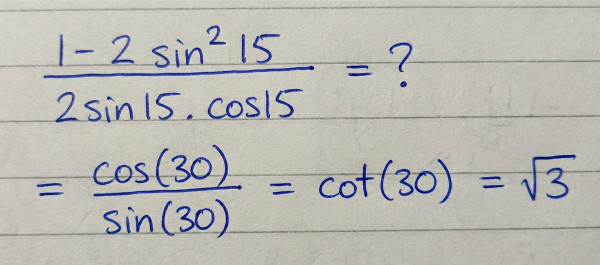 1 - 2 sin² 15 / 2 sin 15 . cos 15 = ?
= cos(30) / sin(30) = cot(30) = √3